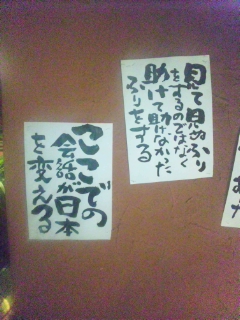 見て見ぬふり
をするのではなく
助けて助けなかった
ふりをする
ここでの
会話が日本
を変える